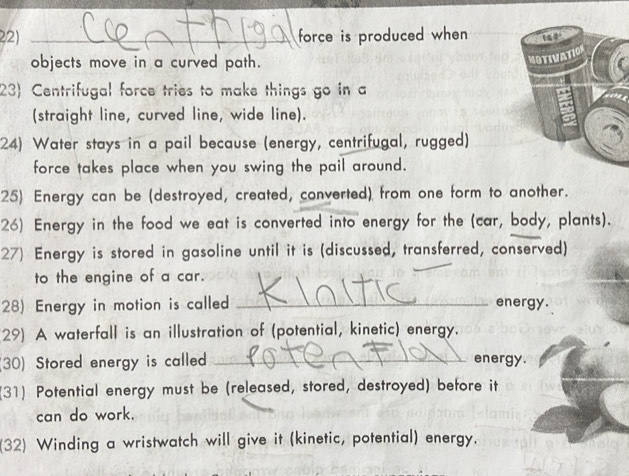 22) Centrifigal force is produced when
objects move in a curved path.
23) Centrifugal force tries to make things go in a
(straight line, curved line, wide line).
24) Water stays in a pail because (energy, centrifugal, rugged)
force takes place when you swing the pail around.
25) Energy can be (destroyed, created, converted) from one form to another.
26) Energy in the food we eat is converted into energy for the (car, body, plants).
27) Energy is stored in gasoline until it is (discussed, transferred, conserved)
to the engine of a car.
28) Energy in motion is called Kinitic energy.
29) A waterfall is an illustration of (potential, kinetic) energy.
(30) Stored energy is called potential energy.
(31) Potential energy must be (released, stored, destroyed) before it
can do work.
(32) Winding a wristwatch will give it (kinetic, potential) energy.
MOTIVATION
ENERGY